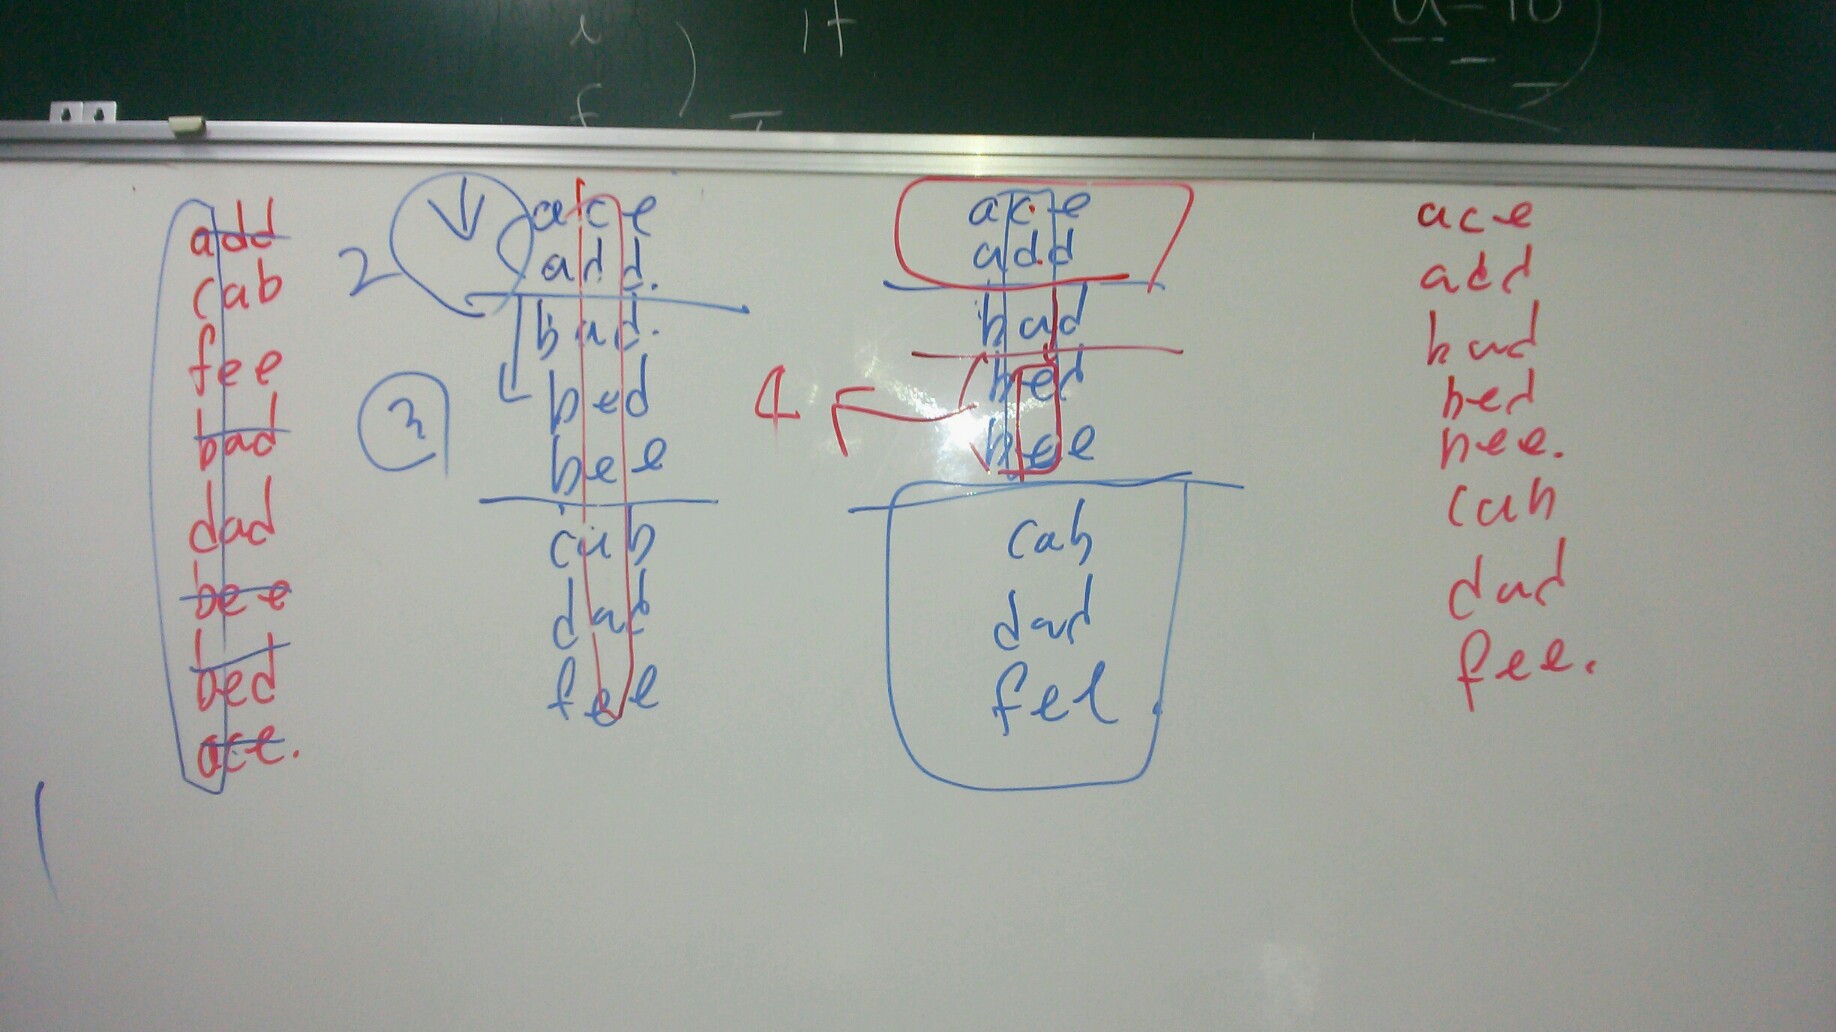 add
cab
fee
bad
dad
bee
bed
ace.
2
3
ace
add.
bad.
bed
bee
cab
dad
fee
4
ace
add
bad
bed
bee
cab
dad
fee
ace
add
bad
bed
bee.
cab
dad
fee.